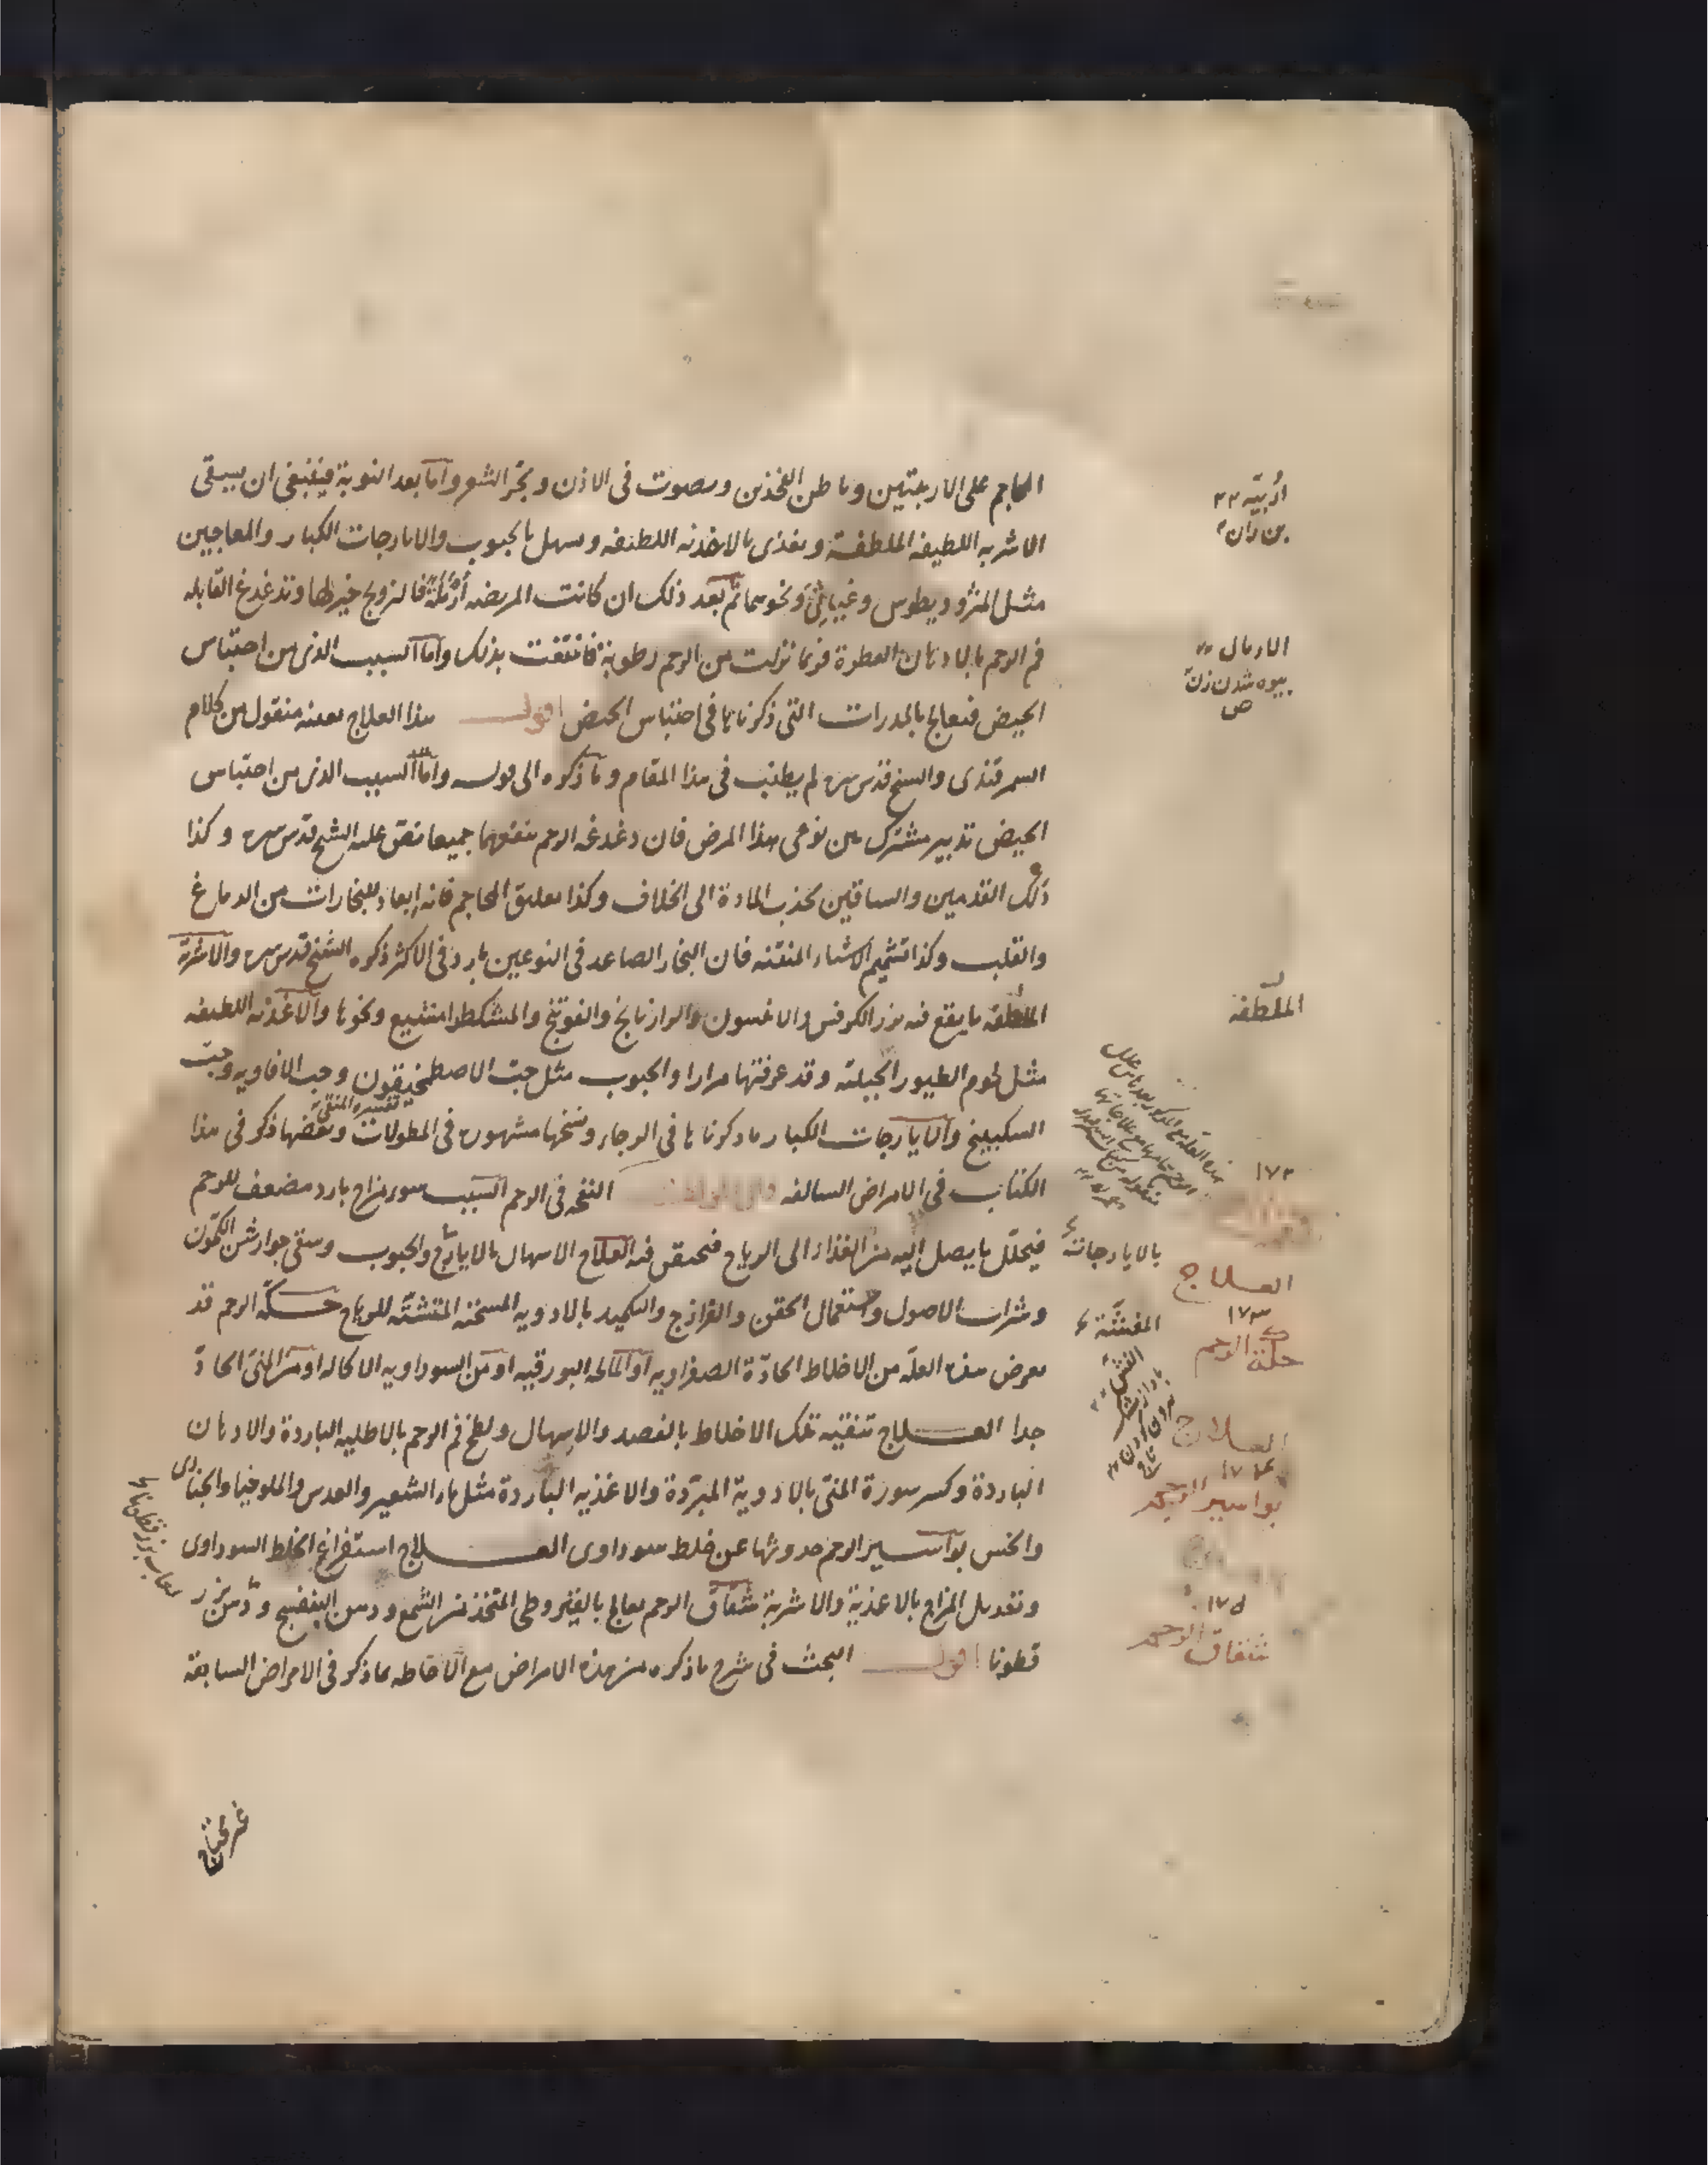 المحاجم على الاربيتين وباطن الفخذين ويصوت فى الاذن ويجر الشعر واما بعد النوبة فينبغى ان يسقى
الاشربه اللطيفه الملطفة ويغذى بالاغذيه اللطيفه ويسهل بالحبوب والايارجات الكبار والمعاجين
مثل المثروديطوس وغياثى ونحوهما ثم بعد ذلك ان كانت المريضه أرملة فالتزويج خير لها وتدغدغ القابله
فم الرحم بالادهان العطرة فربما نزلت من الرحم رطوبة فانتفعت بذلك واما السبب الذى من احتباس
الحيض فيعالج بالمدرات التى ذكرناها فى احتباس الحيض اقول هذا العلاج بعينه منقول من كلام
السمرقندى والشيخ قدس سره لم يطنب فى هذا المقام وما ذكره الى قوله واما السبب الذى من احتباس
الحيض تدبير مشترك بين نوعى هذا المرض فان دغدغه الرحم ينفعهما جميعا نص عليه الشيخ قدس سره وكذا
دلك القدمين والساقين يجذب المادة الى الخلاف وكذا تعليق المحاجم فانه ابعاد للبخارات من الدماغ
والقلب وكذا تشميم الاشياء المنتنه فان البخار الصاعد فى النوعين بارد فى الاكثر ذكره الشيخ قدس سره والاشربة
الملطفه ما يقع فيه بزر الكرفس والانيسون والرازيانج والفوتنج والمشكطرامشيع ونحوها والاغذيه اللطيفه
مثل لحوم الطيور الجبليه وقد عرفتها مرارا والحبوب مثل حب الاصطمخيقون وحب الافاويه وحب
السكبينج والايارجات الكبار ما ذكرناها فى الرجاء ونسخها مشهورة فى المطولات وبعضها ذكر فى هذا
الكتاب فى الامراض السالفه قال المولف النفخه فى الرحم السبب سوء مزاج بارد مضعف للرحم
فيحلل ما يصل اليه من الغذاء الى الرياح فيحتقن فيه العلاج الاسهال بالايارج والحبوب وسقى جوارشن الكمون
وشراب الاصول واستعمال الحقن والفرازج والتكميد بالادويه المسخنه المنششه للرياح حكة الرحم قد
يعرض هذه العلة من الاخلاط الحادة الصفراويه او المالحه البورقيه او من السوداويه الاكاله او من المنى الحاد
جدا العلاج تنقيه تلك الاخلاط بالفصد والاسهال ولطخ فم الرحم بالاطليه الباردة والادهان
الباردة وكسر سورة المنى بالادوية المبردة والاغذيه الباردة مثل ماء الشعير والعدس والملوخيا والخبازى
والخس بواسير الرحم حدوثها عن خلط سوداوى العلاج استفراغ الخلط السوداوى
وتعديل المزاج بالاغذية والاشربة شقاق الرحم يعالج بالقيروطى المتخذ من الشمع ودهن البنفسج ودهن بزر
قطونا اقول البحث فى شرح ما ذكره من هذه الامراض مع الاحاطه بما ذكر فى الامراض السابقة
اربيه
بن ران
الارمال
بيوه شدن زن
ص
الملطفه
١٧٢
بالايارجات
العلاج
١٧٣
حكة الرحم
العلاج
١٧٤
بواسير الرحم
١٧٥
شقاق الرحم